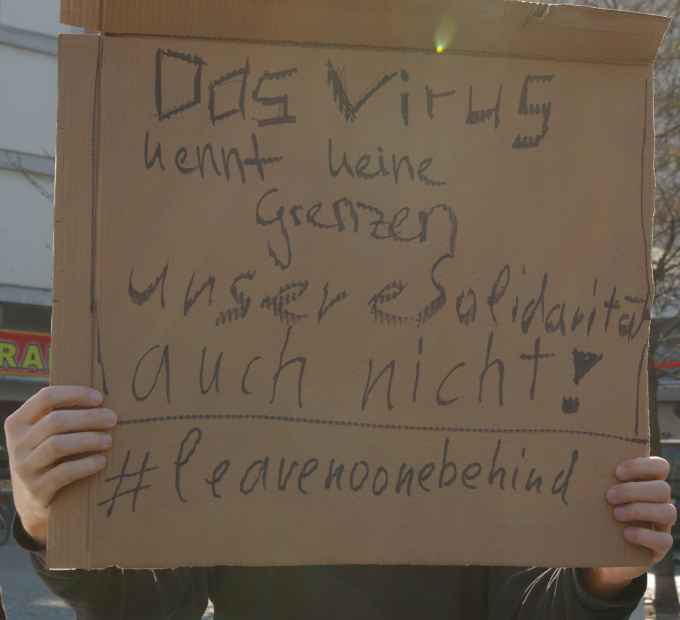 Das Virus
kennt keine
Grenzen
unsere Solidarität
auch nicht!
#leavenoonebehind
RA